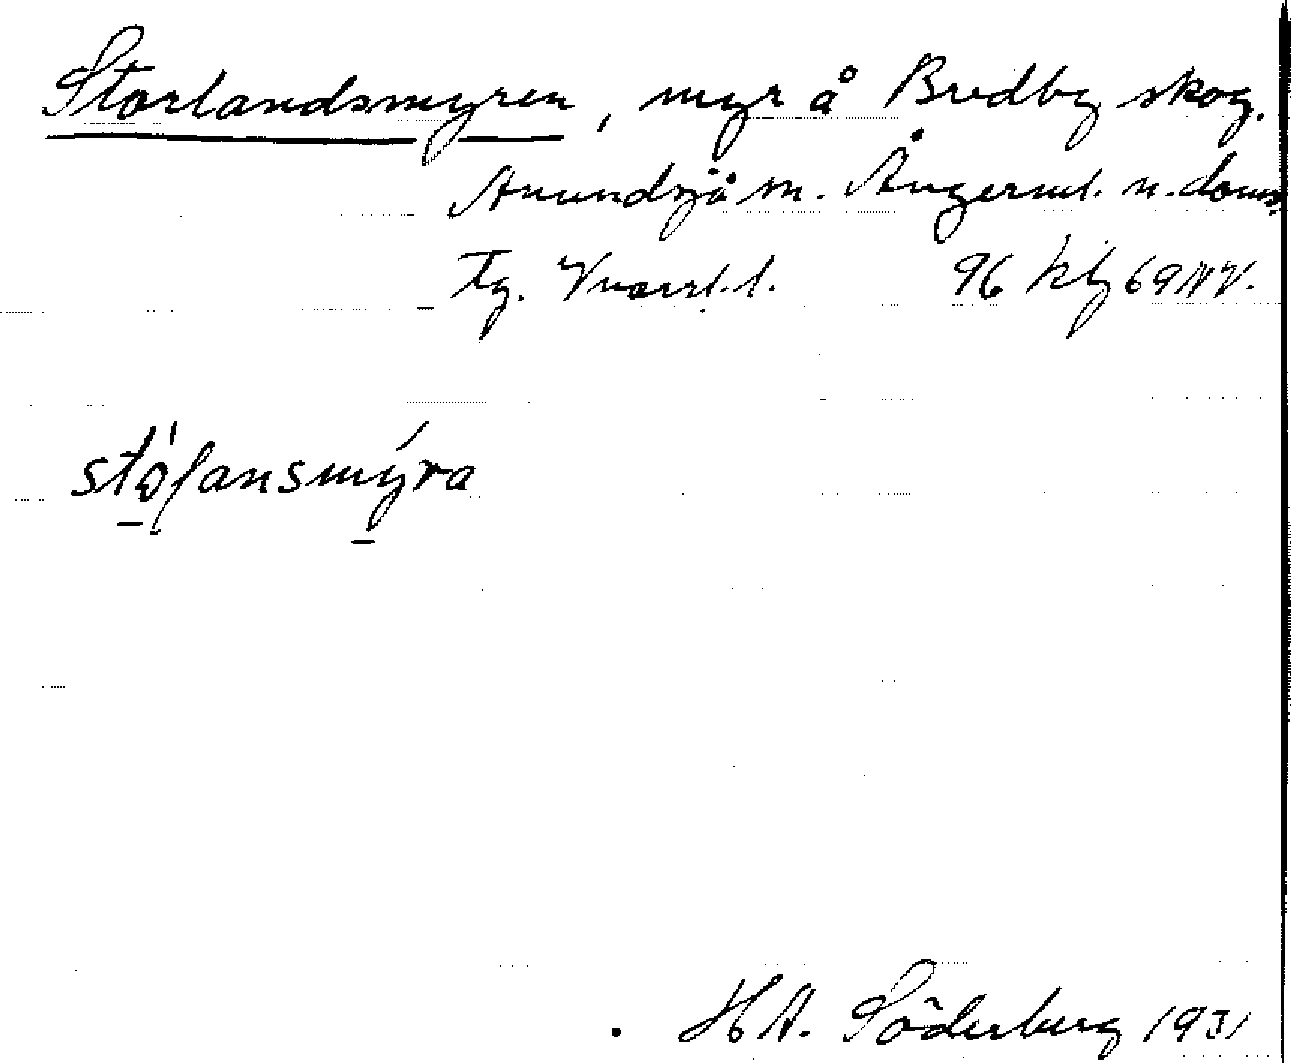 Storlandsmyren, myr å Bredby skog.
Anundsjö sn. Ångerml. n. doms.
Tg.
stófansmýra
H A. Söderberg 1931